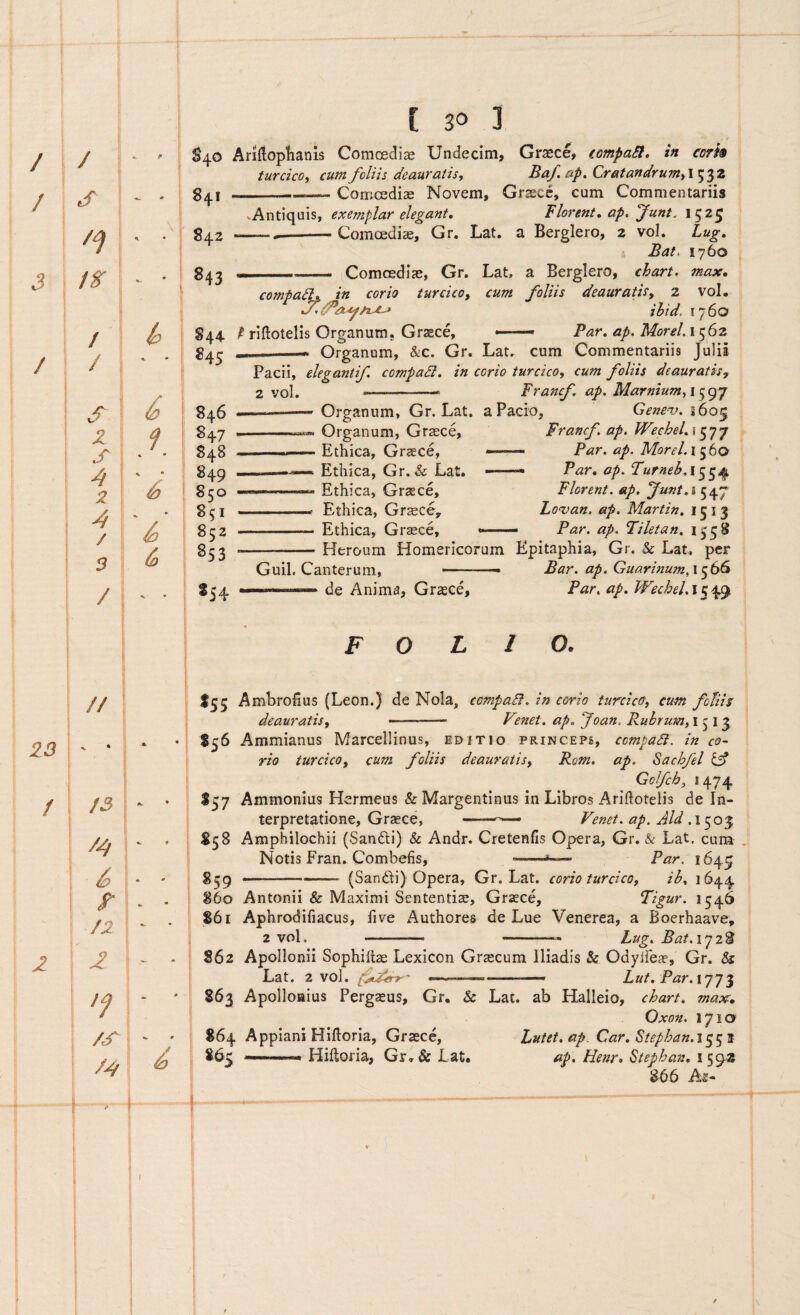 [ 30 ]
/ / - - 840 Ariſtophanis Comœdiæ Undecim, Græcè, compact. in corio
turcico, cum foliis deauratis, Baſ. ap. Cratandrum, 1532
/ 5 - - 841 ——— Comœdiæ Novem, Græcè, cum Commentariis
Antiquis, exemplar elegant. Florent. ap. Junt. 1525
19 - - 842 ——— Comœdiæ, Gr. Lat. a Berglero, 2 vol. Lug.
Bat. 1760
3 18 - - 843 ——— Comœdiæ, Gr. Lat. a Berglero, chart. max.
compact. in corio turcico, cum foliis deauratis, 2 vol.
ibid. 1760
1 6 844 Ariſtotelis Organum, Græcè, —— Par. ap. Morel. 1562
/ / - - 845 ——— Organum, &c. Gr. Lat. cum Commentariis Julii
Pacii, elegantiſ. compact. in corio turcico, cum foliis deauratis,
2 vol. ——— Francſ. ap. Marnium, 1597
5 6 846 ——— Organum, Gr. Lat. a Pacio, Genev. 1605
2 9 847 ——— Organum, Græcè, Francſ. ap. Wechel. 1577
5 - - 848 ——— Ethica, Græcè, —— Par. ap. Morel. 1560
4 - - 849 ——— Ethica, Gr. & Lat. —— Par. ap. Turneb. 1554
2 6 850 ——— Ethica, Græcè, Florent. ap. Junt. 1547
4 - - 851 ——— Ethica, Græcè, Lovan. ap. Martin. 1513
1 6 852 ——— Ethica, Græcè, —— Par. ap. Tiletan. 1558
3 6 853 ——— Heroum Homericorum Epitaphia, Gr. & Lat. per
Guil. Canterum, ——— Bar. ap. Guarinum, 1566
/ - - 854 ——— de Anima, Græcè, Par. ap. Wechel. 1549
F O L I O.
11 855 Ambroſius (Leon.) de Nola, compact. in corio turcico, cum foliis
deauratis, ——— Venet. ap. Joan. Rubrum, 1513
23 - - - - 856 Ammianus Marcellinus, EDITIO PRINCEPS, compact. in co-
rio turcico, cum foliis deauratis, Rom. ap. Sachſel &
Golſch, 1474
1 13 - - 857 Ammonius Hermeus & Margentinus in Libros Ariſtotelis de In-
terpretatione, Græce, ——— Venet. ap. Ald. 1503
14 - - 858 Amphilochii (Sancti) & Andr. Cretenſis Opera, Gr. & Lat. cum
Notis Fran. Combefis, ——— Par. 1645
6 - - 859 ——— (Sancti) Opera, Gr. Lat. corio turcico, ib. 1644
8 - - 860 Antonii & Maximi Sententiæ, Græcé, Tigur. 1546
12 - - 861 Aphrodiſiacus, ſive Authores de Lue Venerea, a Boerhaave,
2 vol. ——— ——— Lug. Bat. 1728
2 2 - - 862 Apollonii Sophiſtæ Lexicon Græcum Iliadis & Odyſſeæ, Gr. &
Lat. 2 vol. ——— Lut. Par. 1773
19 - - 863 Apollonius Pergæus, Gr. & Lat. ab Halleio, chart. max.
Oxon. 1710
15 - - 864 Appiani Hiſtoria, Græcè, Lutet. ap. Car. Stephan. 1551
14 6 865 ——— Hiſtoria, Gr. & Lat. ap. Henr. Stephan. 1592
866 As-